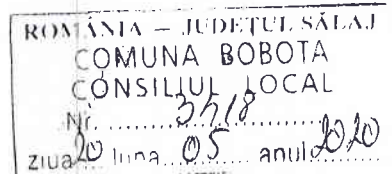 ROMÂNIA — JUDEȚUL SĂLAJ
COMUNA BOBOTA
CONSILIUL LOCAL
Nr. ........ 3418
ziua 20 luna 05 anul 2020